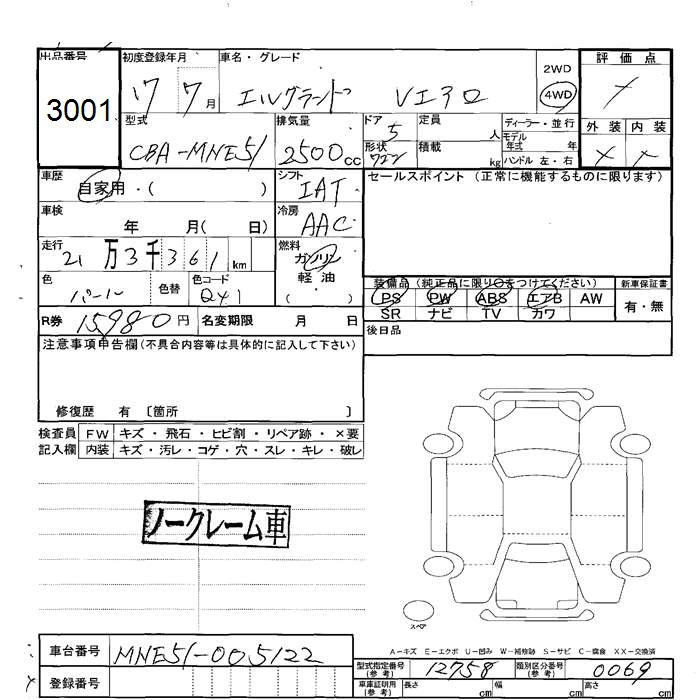 出品番号 初度登録年月 車名・グレード 2WD 4WD 評価点
3001 17 7月 エルグランド VEロ
型式 排気量 ドア 定員 人 ディーラー・並行 外装 内装
CBA-MNE51 2500cc 5 形状 ワゴン 積載 kg モデル年式 年
ハンドル 左・右
車歴 自家用・( ) シフト IAT セールスポイント (正常に機能するものに限ります)
車検 年 月( 日) 冷房 AAC
走行 21万3千361km 燃料 ガソリン 軽油 ( )
色 パール 色替 色コード QX1
装備品(純正品に限り○をつけてください) 新車保証書
PS PW ABS エアB AW 有・無
SR ナビ TV カワ
R券 15980円 名変期限 月 日 後日品
注意事項申告欄(不具合内容等は具体的に記入して下さい)
修復歴 有 〔箇所 〕
検査員 FW キズ・飛石・ヒビ割・リペア跡・×要
記入欄 内装 キズ・汚レ・コゲ・穴・スレ・キレ・破レ
ノークレーム車
スペア
A-キズ E-エクボ U-凹み W-補修跡 S-サビ C-腐食 XX-交換済
車台番号 MNE51-005122 型式指定番号(参考) 12758 類別区分番号(参考) 0069
登録番号 車庫証明用(参考) 長さ cm 幅 cm 高さ cm